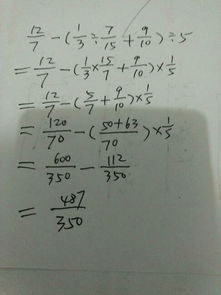 12/7 - (1/3 ÷ 7/15 + 9/10) ÷ 5
= 12/7 - (1/3 × 15/7 + 9/10) × 1/5
= 12/7 - (5/7 + 9/10) × 1/5
= 120/70 - (50+63/70) × 1/5
= 600/350 - 112/350
= 487/350